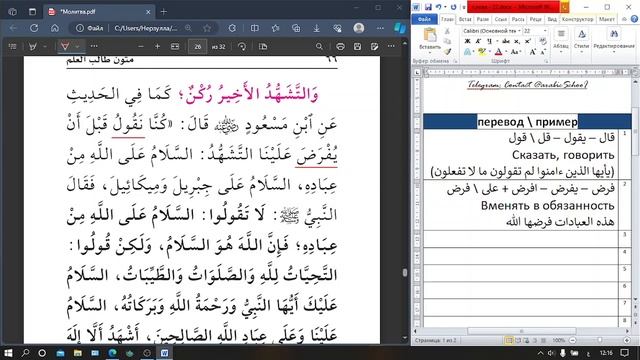 *Молитва.pdf
C:/Users/Нерзулла/...
26 из 32
متون طالب العلم
٦٦
وَالتَّشَهُّدُ الأَخِيرُ رُكْنٌ؛ كَمَا فِي الْحَدِيثِ
عَنِ ابْنِ مَسْعُودٍ ﷺ قَالَ: «كُنَّا نَقُولُ قَبْلَ أَنْ
يُفْرَضَ عَلَيْنَا التَّشَهُّدُ: السَّلَامُ عَلَى اللَّهِ مِنْ
عِبَادِهِ، السَّلَامُ عَلَى جِبْرِيلَ وَمِيكَائِيلَ، فَقَالَ
النَّبِيُّ ﷺ: لَا تَقُولُوا: السَّلَامُ عَلَى اللَّهِ مِنْ
عِبَادِهِ؛ فَإِنَّ اللَّهَ هُوَ السَّلَامُ، وَلَكِنْ قُولُوا:
التَّحِيَّاتُ لِلَّهِ وَالصَّلَوَاتُ وَالطَّيِّبَاتُ، السَّلَامُ
عَلَيْكَ أَيُّهَا النَّبِيُّ وَرَحْمَةُ اللَّهِ وَبَرَكَاتُهُ، السَّلَامُ
عَلَيْنَا وَعَلَى عِبَادِ اللَّهِ الصَّالِحِينَ، أَشْهَدُ أَلَّا إِلَهَ
Конструктор
Макет
Calibri (Основной тек
22
Вставить
Абзац
Стили
Редактирование
Буфер обм...
Шрифт
Telegram: Contact @arabic School
перевод \ пример
1
قال – يقول – قل \ قول
Сказать, говорить
(يأيها الذين ءامنوا لم تقولون ما لا تفعلون)
2
فرض – يفرض – افرض + على \ فرض
Вменять в обязанность
هذه العبادات فرضها الله
3
4
5
6
7
8
Страница: 1 из 2
100%
12:16